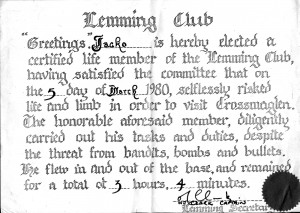 Lemming Club
"Greetings" Jacko is hereby elected a
certified life member of the Lemming Club,
having satisfied the committee that on
the 5 day of March 1980, selflessly risked
life and limb in order to visit Crossmaglen.
The honorable aforesaid member, diligently
carried out his tasks and duties, despite
the threat from bandits, bombs and bullets.
He flew in and out of the base, and remained
for a total of 3 hours, 4 minutes.
CAPTAIN
Lemming Secretary